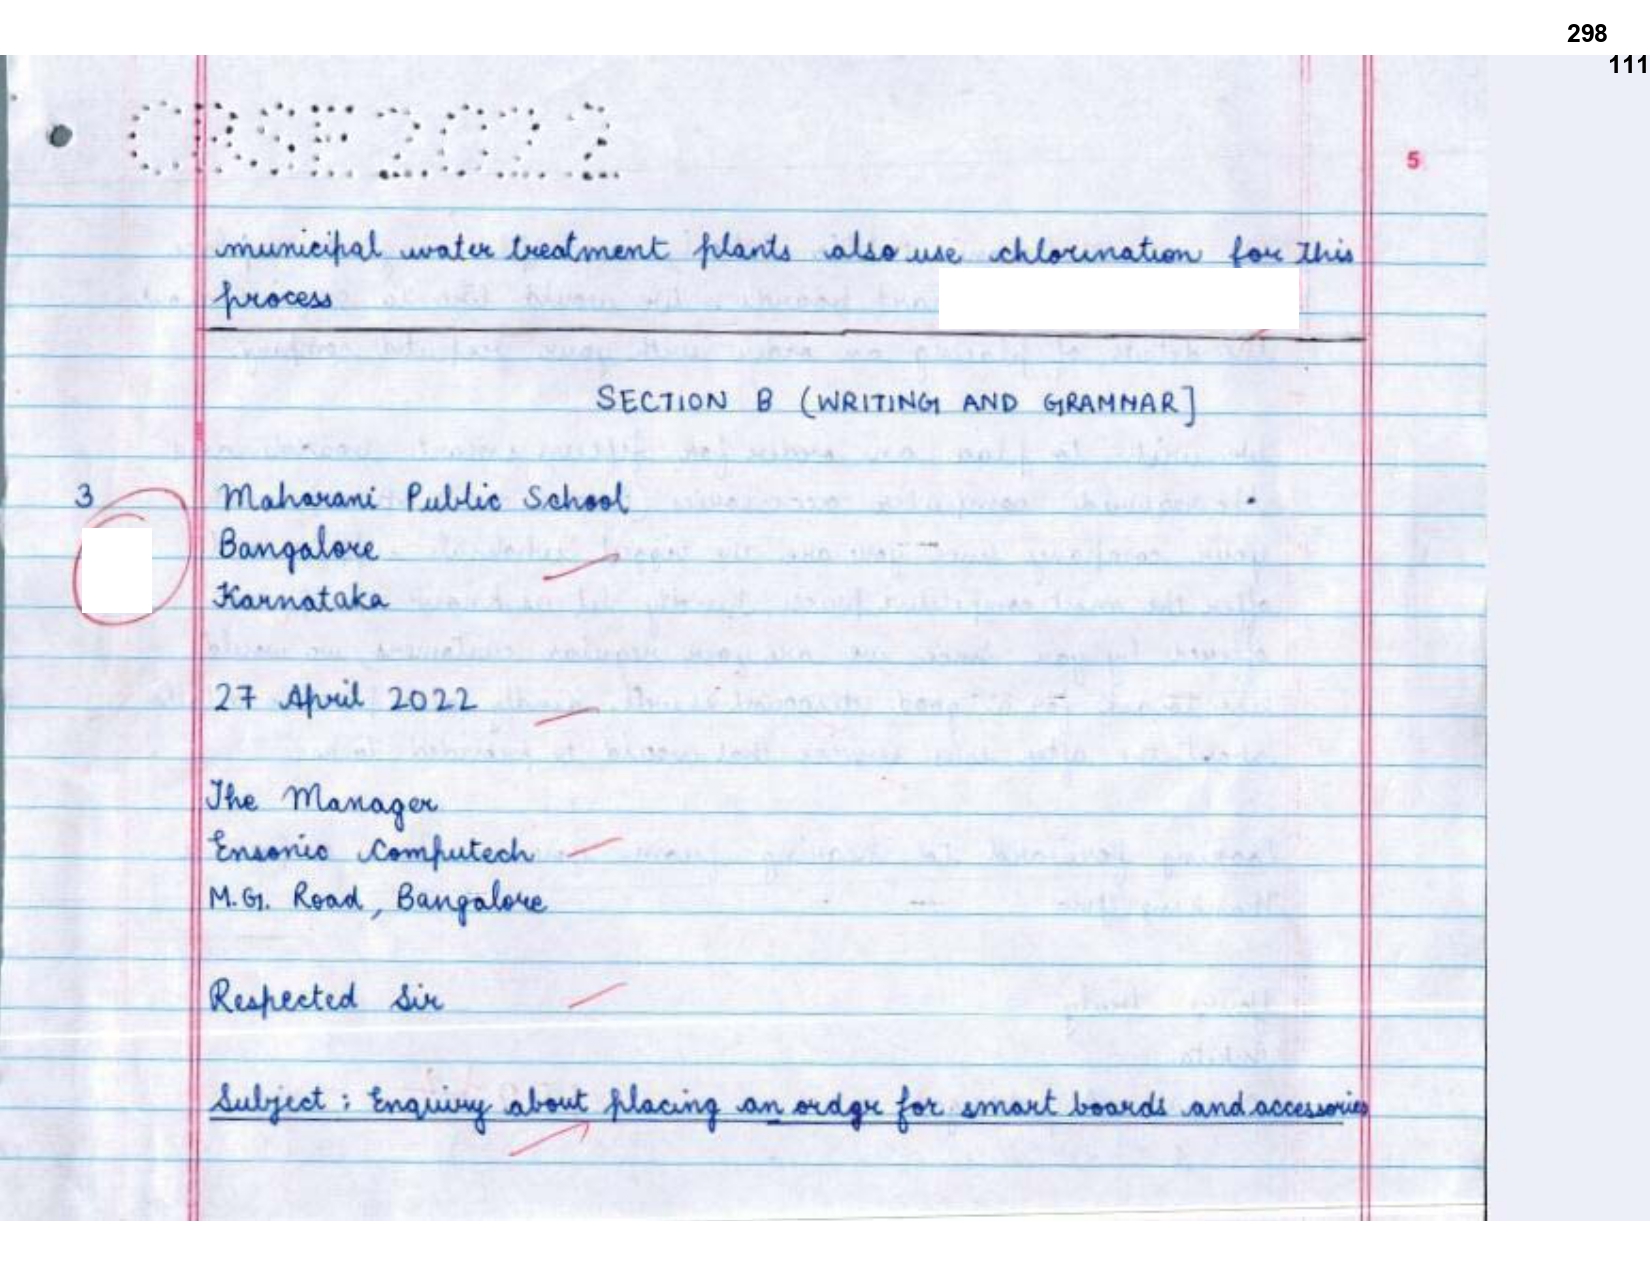 298
111
CBSE 2022
5
municipal water treatment plants also use chlorination for this
process
SECTION B (WRITING AND GRAMMAR]
3 Maharani Public School
Bangalore
Karnataka
27 April 2022
The Manager
Ensonic Computech
M.G. Road, Bangalore
Respected Sir
Subject : Enquiry about placing an order for smart boards and accessories